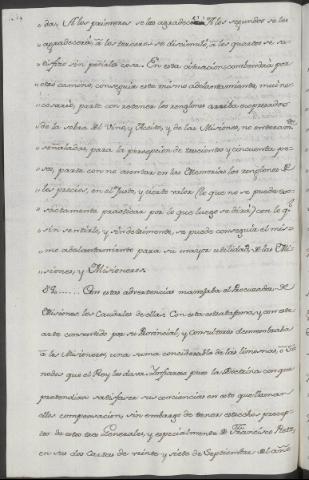 da. A los primeros se les agradece: A los segundos se les
" agradecerá: à los terceros se disimuló, à los quartos se sa-
" tisfizo sin pedirla cosa. En esta situacion, combendria por
" estos caminos, conseguir este mismo adelantamiento, mui ne-
" cesario, parte con retener los renglones arriba expresados
" de la sobra del Vino, y Aceite, y de las Misiones, no enteram.te
" señaladas, para la percepcion de trescientos y cincuenta pe-
" sos, parte con no asentar en las Memorias los renglones de
" los precios, en el justo, y cierto valor (lo que no se puede ex-
" actamente practicar por lo que luego se dirà) con lo q.e
" sin sentirlo, y sin detrimento, se puede conseguir el mis-
" mo adelantamiento para su mayor utilidad, de las Mi-
" siones, y Misioneros.
82...... Con estas advertencias manejaba el Procurador de
Misiones los Caudales de ellas. Con esta estratagema, y con este
arte consentido por su Provincial, y Consultores desmembraba
à las Misiones, una suma considerable de las limosnas, o Si-
nodos que el Rey les dava. Infieras pues la Doctrina con que
pretendian satisfacer sus conciencias en esto que llaman
ellos compensacion, sin embargo de tener estrechos precep-
tos de estos tres Generales, y especialmente de Francisco Retz,
en sus dos Cartas de veinte y siete de Septiembre del año